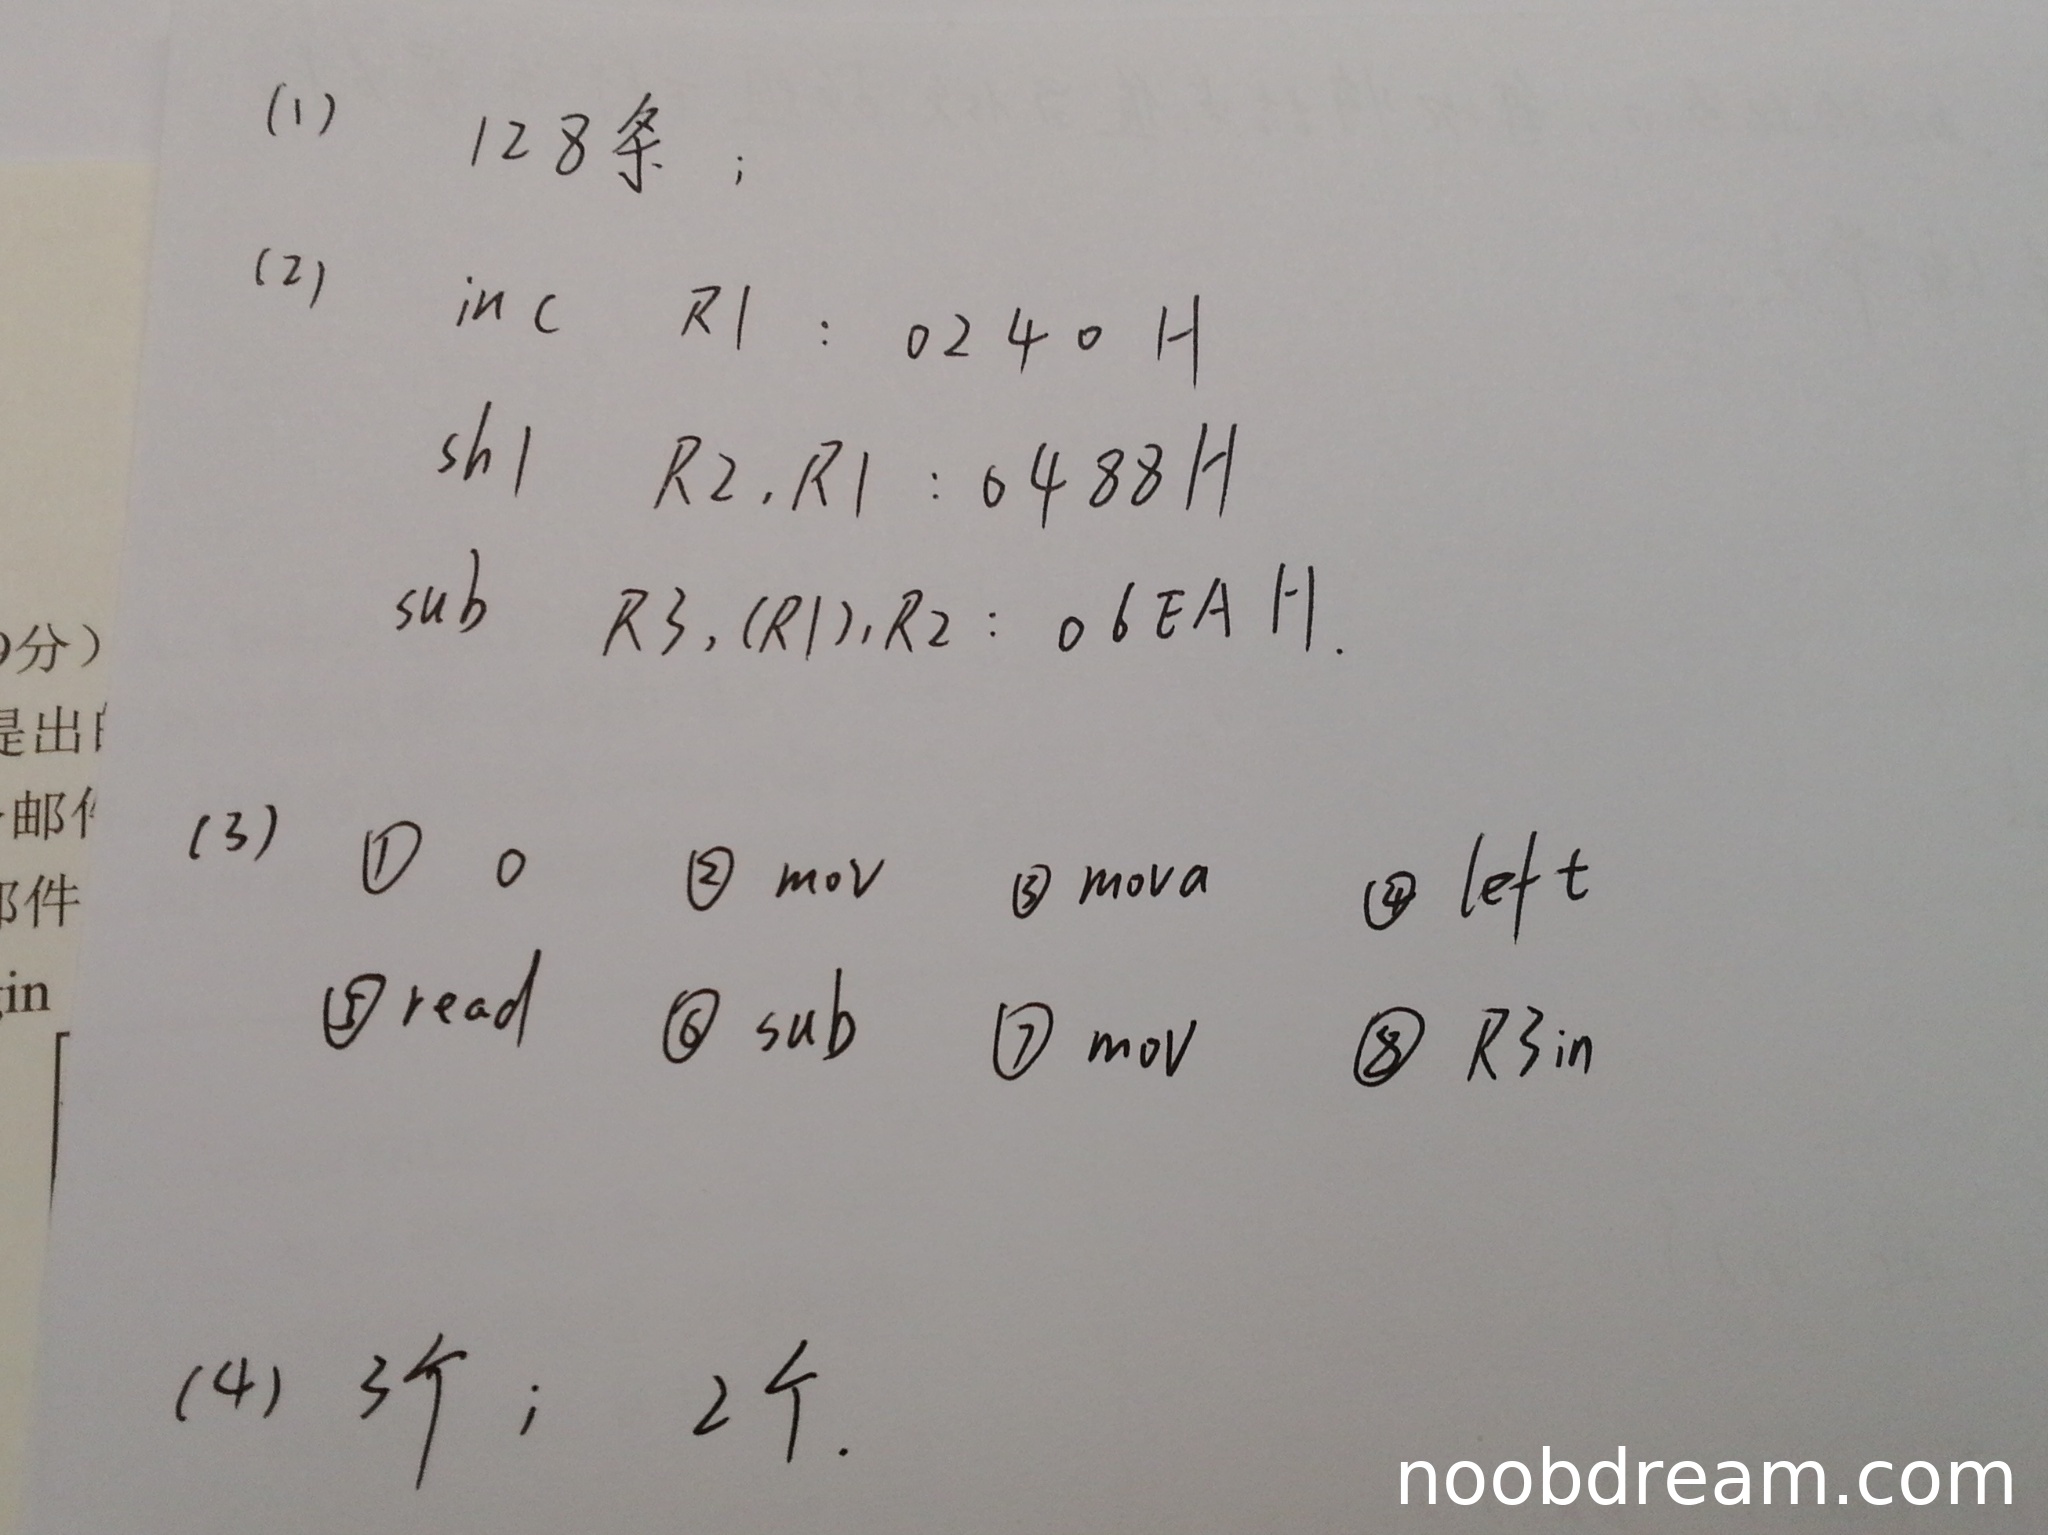 (1) 128条;
(2) inc R1 : 0240H
shl R2, R1 : 0488H
sub R3, (R1), R2 : 06EAH.
(3) ① 0 ② mov ③ mova ④ left
⑤ read ⑥ sub ⑦ mov ⑧ R3in
(4) 3个; 2个.
分)
是出
邮件
邮件
gin
noobdream.com